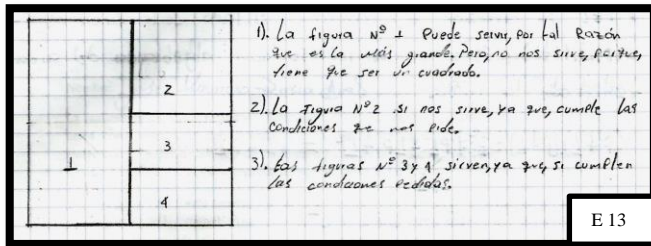 1). La figura Nº 1 Puede servir, Por tal Razón
que es la más grande. Pero, no nos sirve, Porque,
tiene que ser un cuadrado.
2). La Figura Nº 2 si nos sirve, ya que, cumple las
condiciones que nos Pide.
3). Las figuras Nº 3 y 4 sirven, ya que, si cumplen
las condiciones Pedidas.
1
2
3
4
E 13